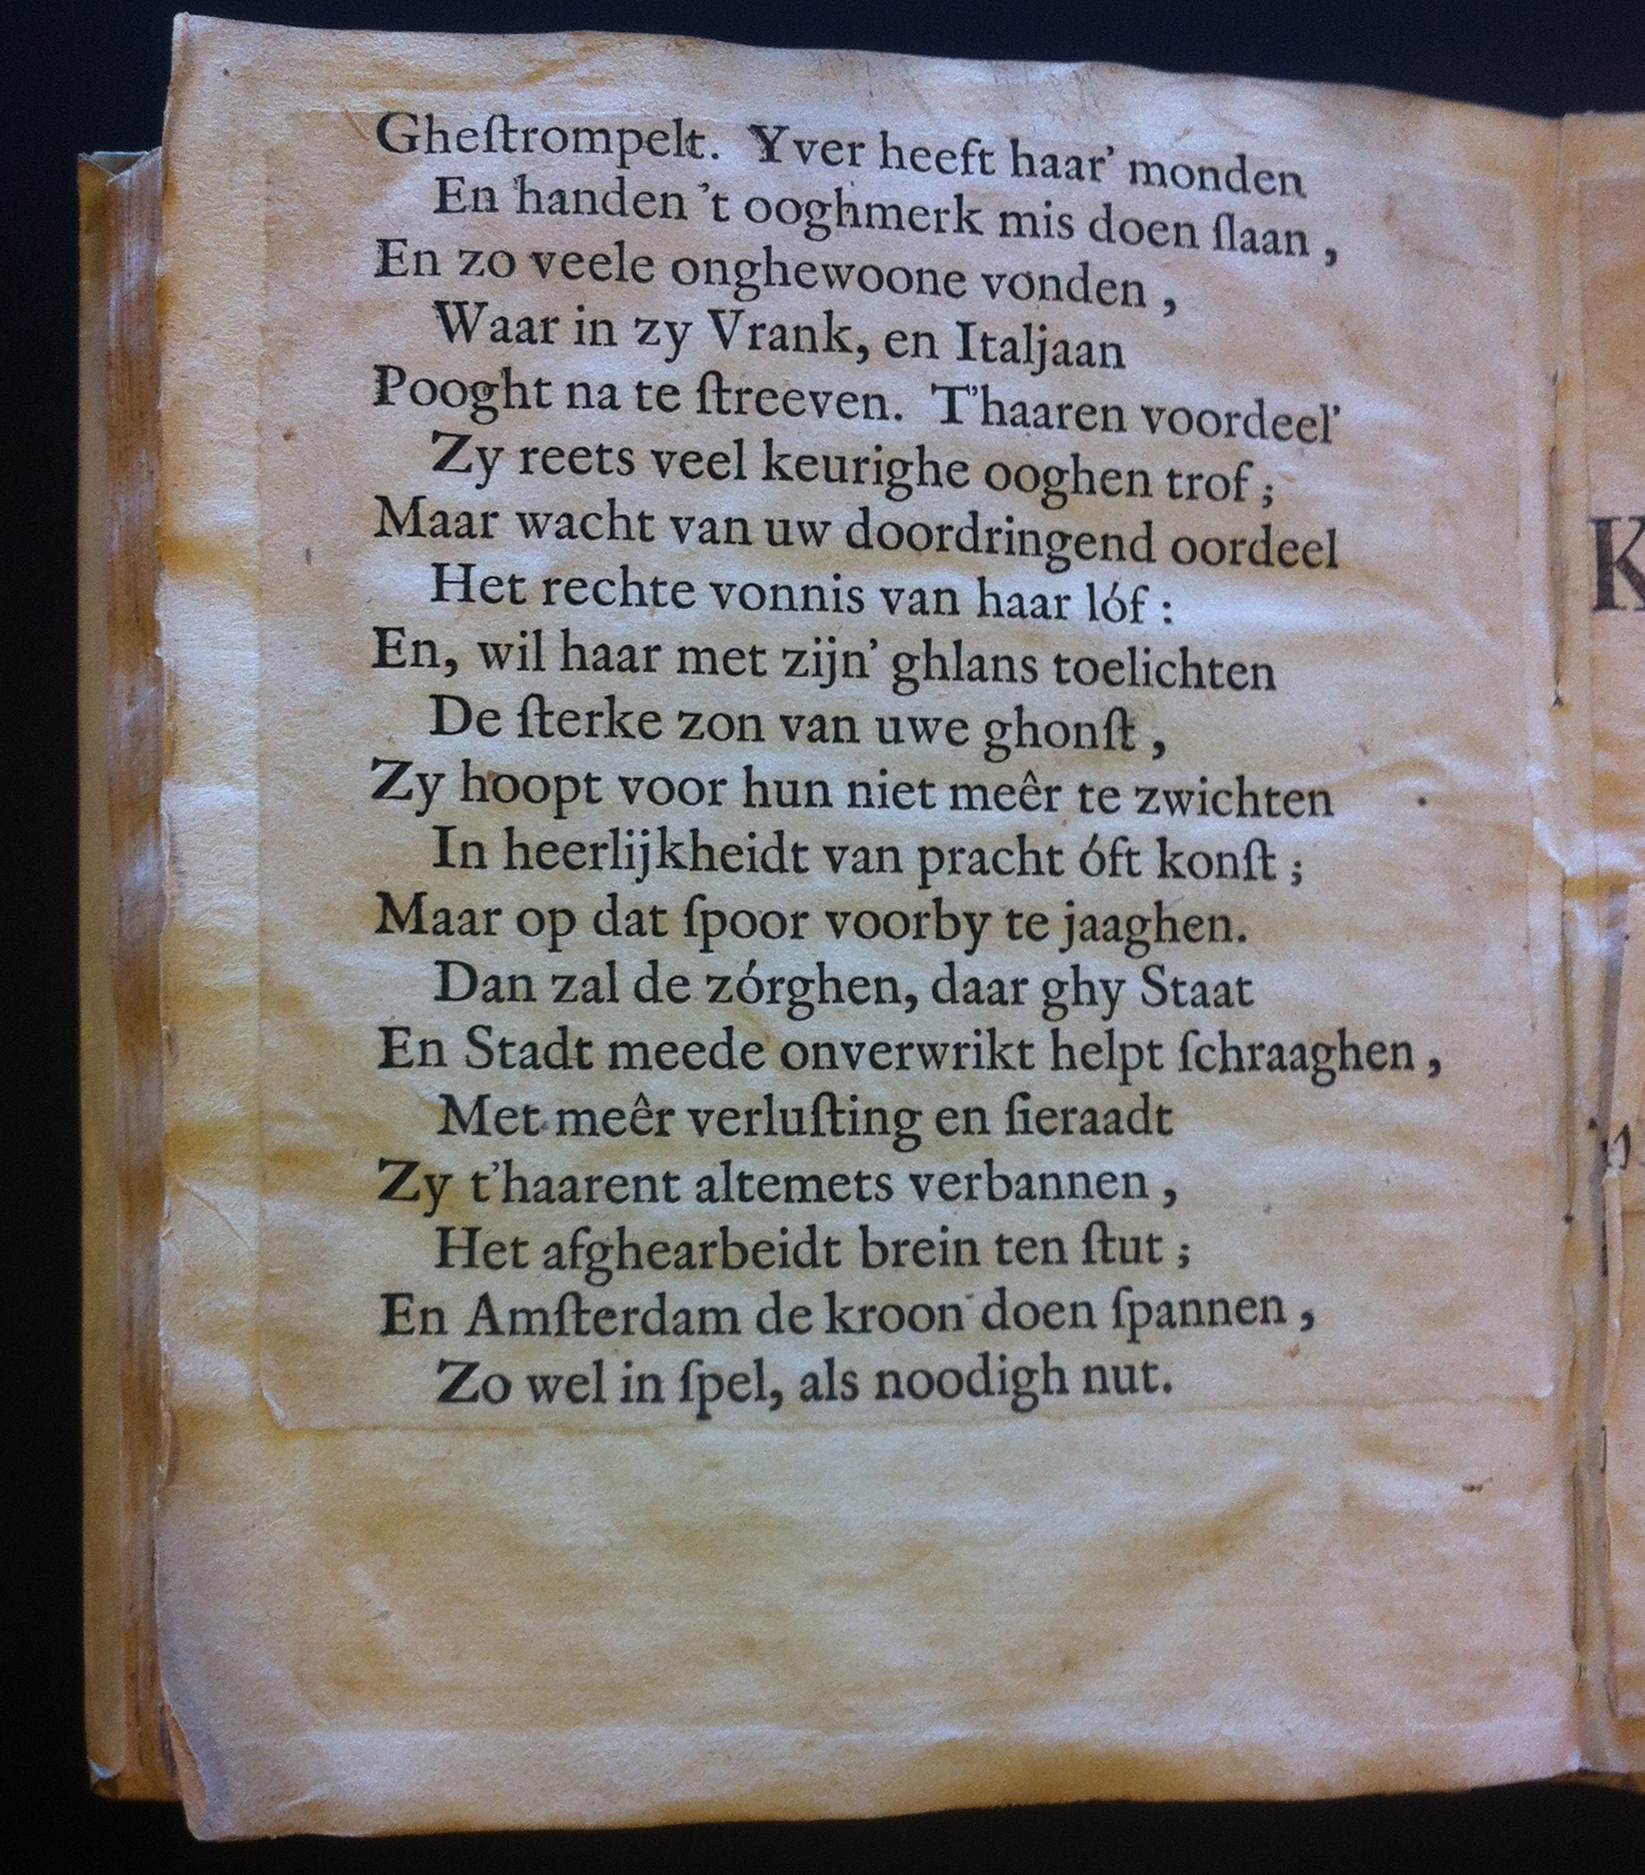 Gheſtrompelt. Yver heeft haar’ monden
En handen ’t ooghmerk mis doen ſlaan,
En zo veele onghewoone vonden,
Waar in zy Vrank, en Italjaan
Pooght na te ſtreeven. T’haaren voordeel’
Zy reets veel keurighe ooghen trof;
Maar wacht van uw doordringend oordeel
Het rechte vonnis van haar lóf:
En, wil haar met zijn’ ghlans toelichten
De ſterke zon van uwe ghonſt,
Zy hoopt voor hun niet meêr te zwichten
In heerlijkheidt van pracht óft konſt;
Maar op dat ſpoor voorby te jaaghen.
Dan zal de zórghen, daar ghy Staat
En Stadt meede onverwrikt helpt ſchraaghen,
Met meêr verluſting en ſieraadt
Zy t’haarent altemets verbannen,
Het afghearbeidt brein ten ſtut;
En Amſterdam de kroon doen ſpannen,
Zo wel in ſpel, als noodigh nut.
K